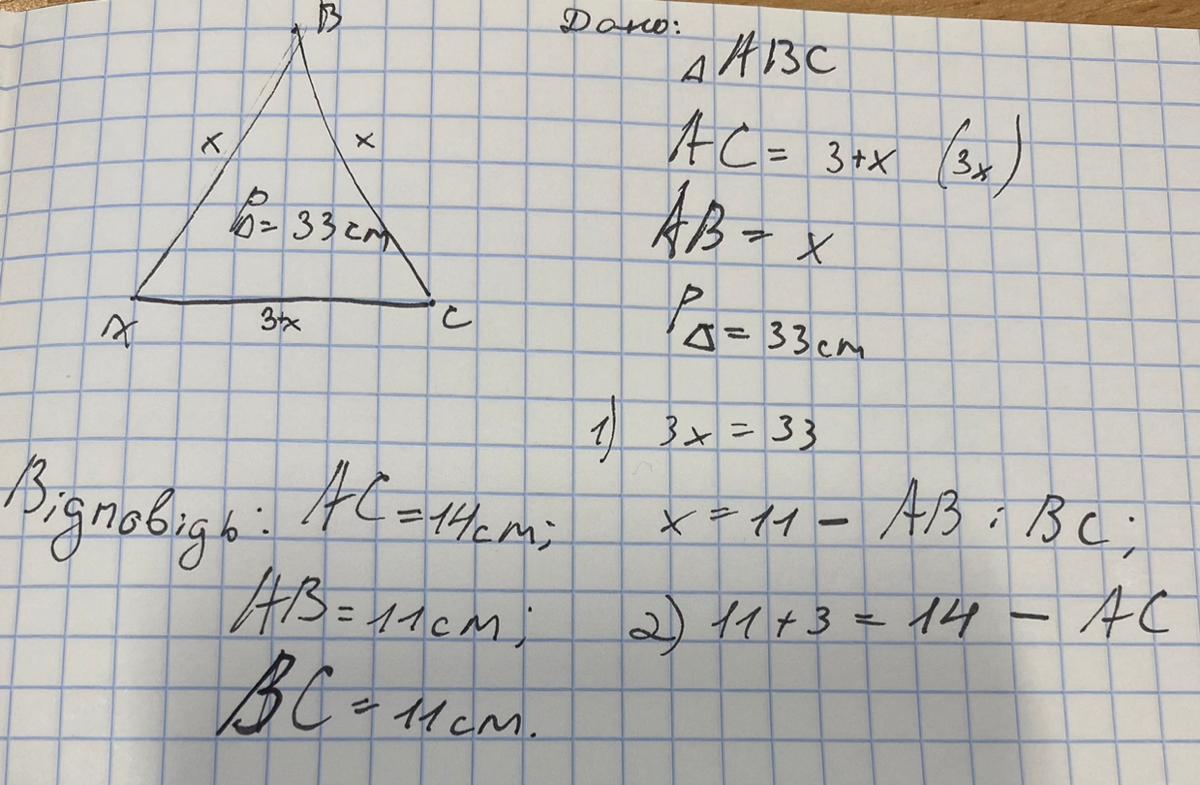 B
x
x
P△ = 33см
A
3+x
C
Дано:
△ABC
AC = 3+x (3x)
AB = x
P△ = 33см
1) 3x = 33
x = 11 – AB і BC;
2) 11 + 3 = 14 – AC
Відповідь: AC = 14см;
AB = 11см;
BC = 11см.